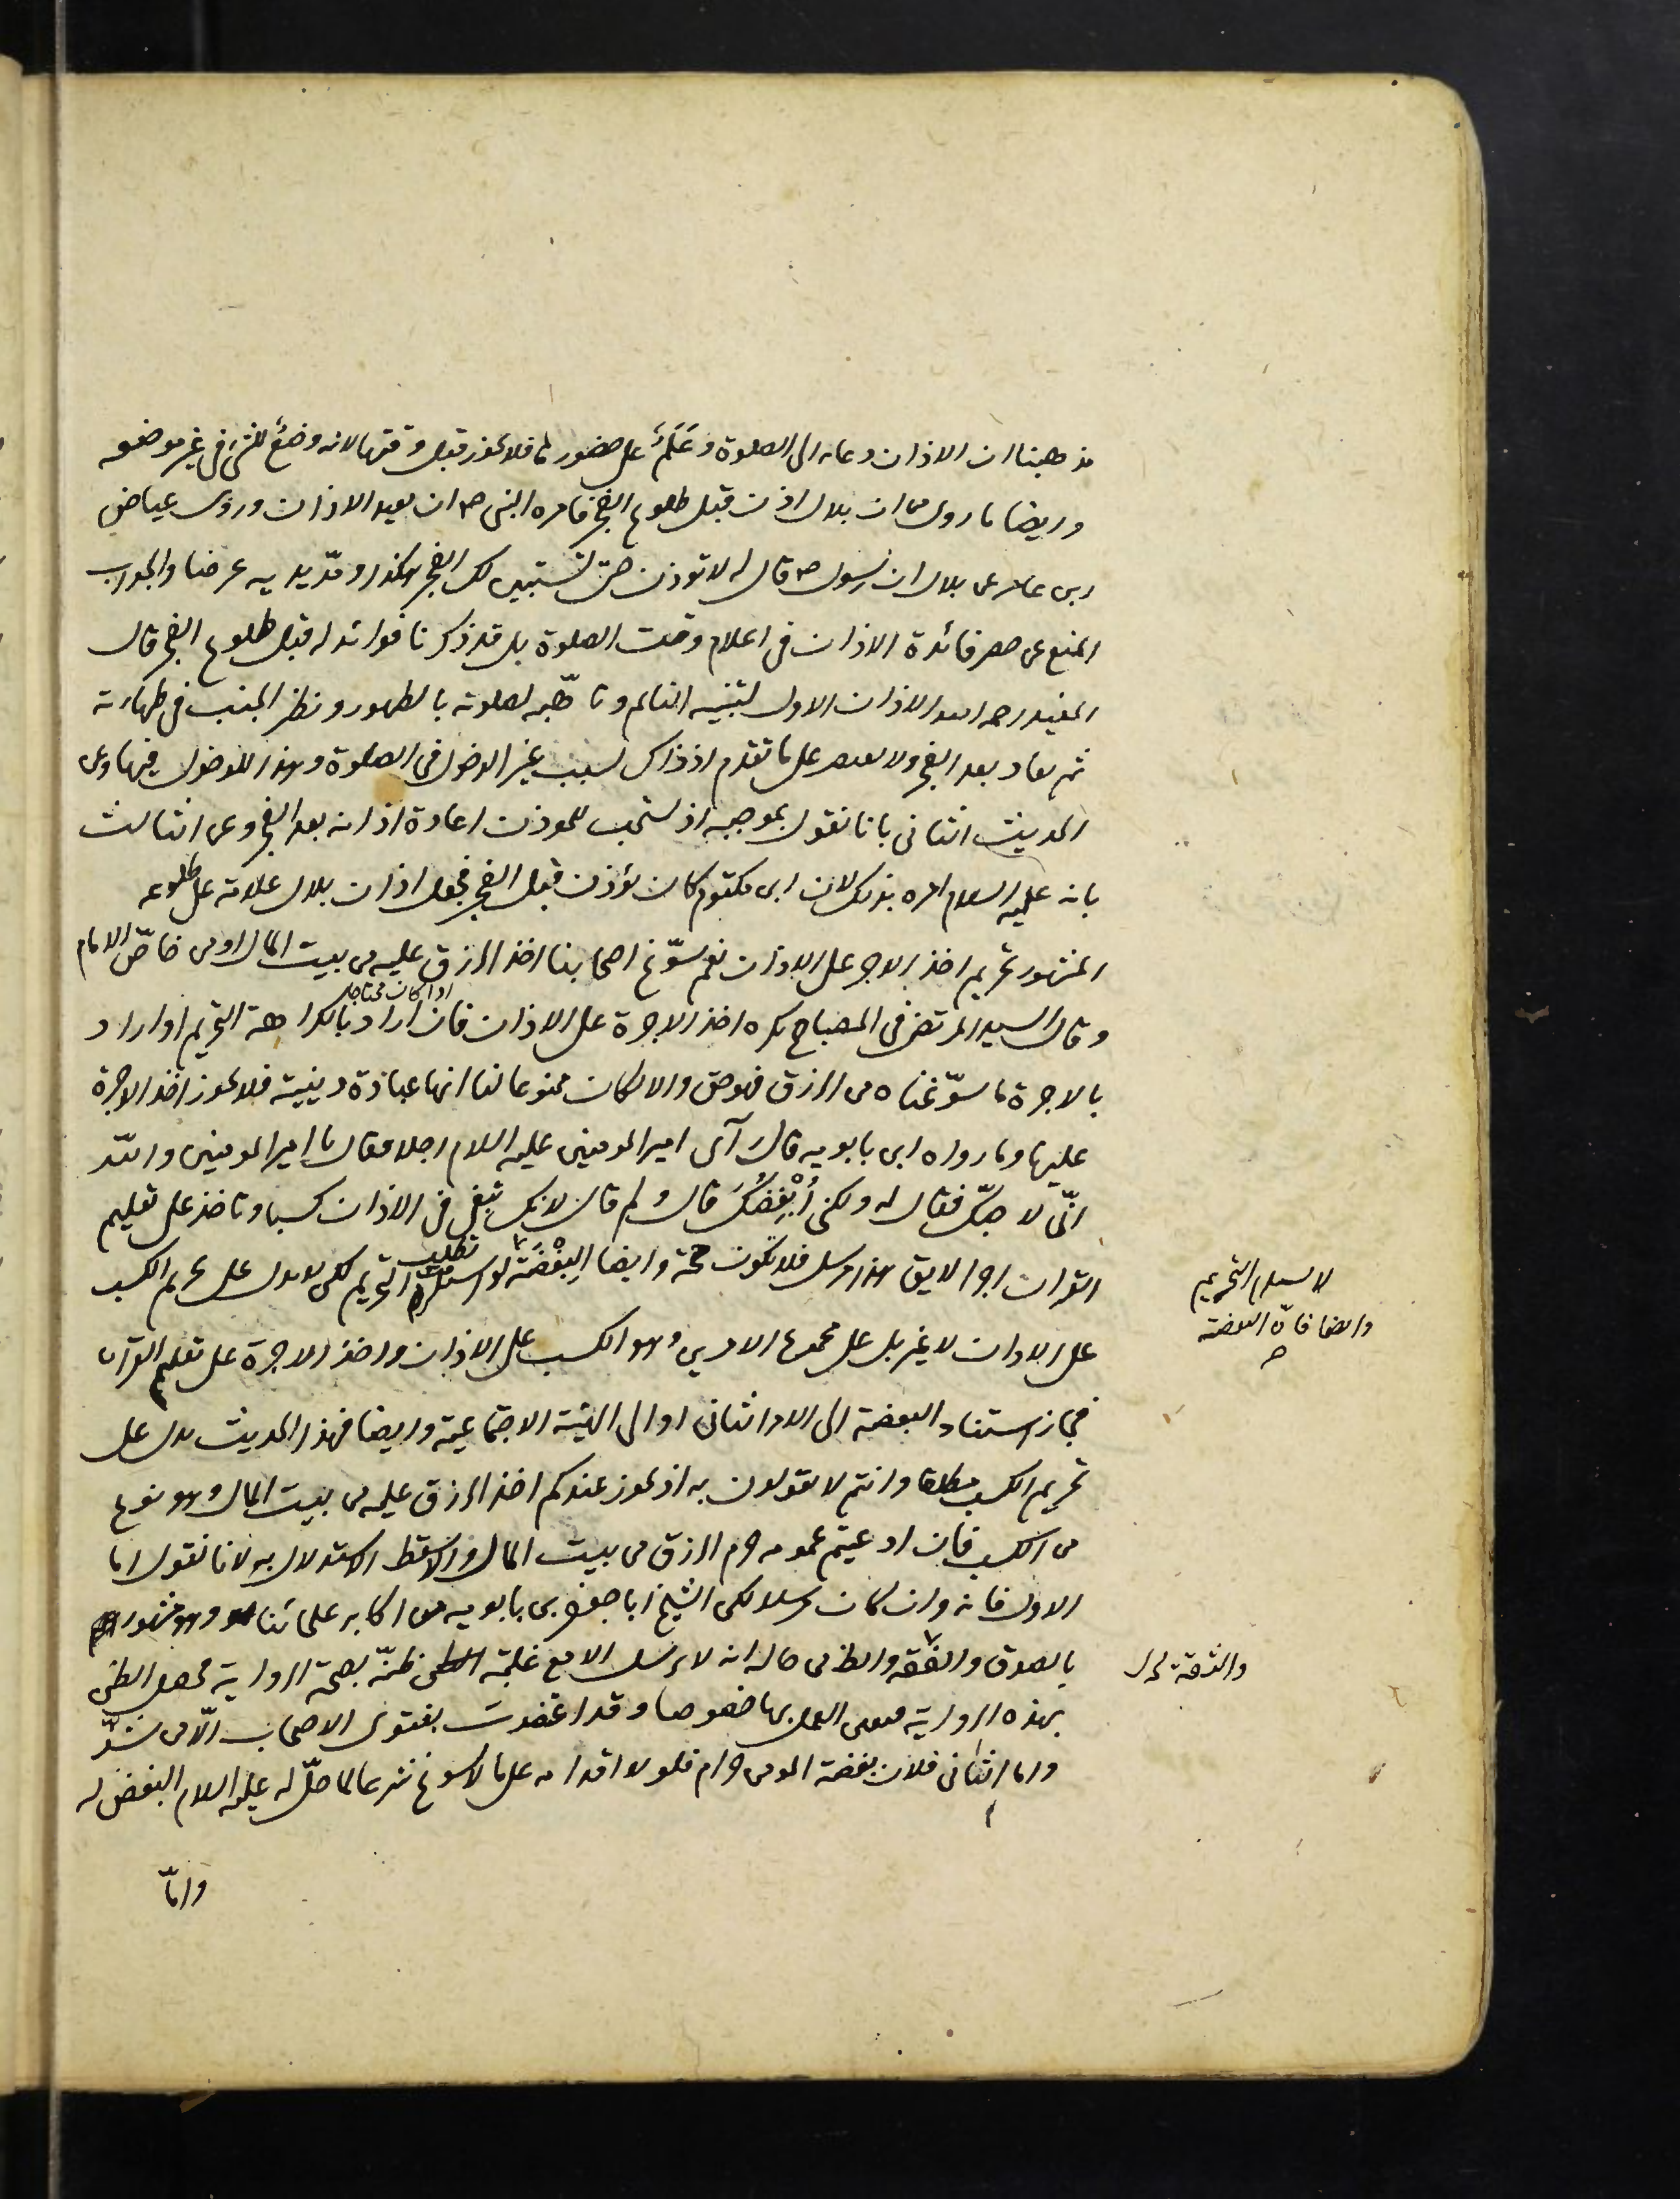 مذهبنا ان الاذان دعاء الى الصلوة وعَلَمٌ على حضورها فلا يجوز قبل وقتها لانه وضعٌ للشئ فى غير موضعه
وايضا ما روى من ان بلال اذن قبل طلوع الفجر فامره النبى ص ان يعيد الاذان وروى عياض
ابن عامر عن بلال ان رسول ص قال له لا توذن حتى تستبين لك الفجر هكذا ومدّ يديه عرضا والجواب
المنع من حصر فائدة الاذان فى اعلام وقت الصلوة بل قد ذكرنا فوائد له قبل طلوع الفجر قال
المفيد رحمه الله الاذان الاول لتنبيه النائم وتاهّبه لصلوته بالطهور ونظر الجنب فى طهارته
ثم يعاد بعد الفجر ولا يقتصر على ما تقدم اذ ذاك لسبب غير الدخول فى الصلوة وهذا للدخول فيها وعن
الحديث الثانى بانا نقول بموجبه اذ يستحب للموذن اعادة اذانه بعد الفجر وعن الثالث
بانه عليه السلام امره بذلك لان ابن مكتوم كان يؤذن قبل الفجر فجعل اذان بلال علامة على طلوعه
المشهور تحريم اخذ الاجر على الاذان نعم سوّغ اصحابنا اخذ الرزق عليه من بيت المال او من خاصّ الامام
اذا كان محتاجا
وقال السيد المرتضى فى المصباح يكره اخذ الاجرة على الاذان فان اراد بالكراهة التحريم او اراد
بالاجرة ما سوّغناه من الرزق فهو حق والا لكان ممنوعا لنا انها عبادة دينية فلا يجوز اخذ الاجرة
عليها وما رواه ابن بابويه قال آتى امير المومنين عليه السلام رجلا فقال يا امير المومنين والله
انّى لاحبّك فقال له ولكنى أُبْغِضُكَ قال ولم قال لانك تبغى فى الاذان كسبا وتاخذ على تعليم
القران اجرا لا يق هذا مرسل فلا تكون حجة وايضا البِغْضَة التحريم لكن لا يدل على تحريم الكسب
على الاذان لا غير بل على مجموع الامرين وهو الكسب على الاذان واخذ الاجرة على تعليم القرآن
فجاز استناد البغضة الى الامر الثانى او الى الهيئة الاجتماعية وايضا فهذا الحديث يدل على
تحريم الكسب مطلقا وانتم لا تقولون به اذ يجوز عندكم اخذ الرزق عليه من بيت المال وهو نوع
من الكسب فان ادعيتم عمومه حرم الرزق من بيت المال والا سقط الاستدلال به لانا نقول اما
الاول فانه وان كان مرسلا لكن الشيخ ابا جعفر بن بابويه من اكابر علمائنا وهو مشهور
بالصدق والفقه والظ من حاله انه لا يرسل الا مع غلبة ظنّه بصحة الرواية فحصل الظن
بهذه الرواية فتعين العمل بها خصوصا وقد اعتضدت بفتوى الاصحاب الّا من شذّ
واما الثانى فلان بغضة المومن حرام فلولا اقدامه على ما لا يسوغ شرعا لما حلّ له عليه السلام البغض له
وامّا
لا يستلزم التحريم
وايضا فانّ البغضة
والثقة